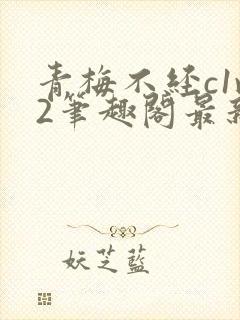 青梅不经c1v
2筆趣閣最新
妖芝藍